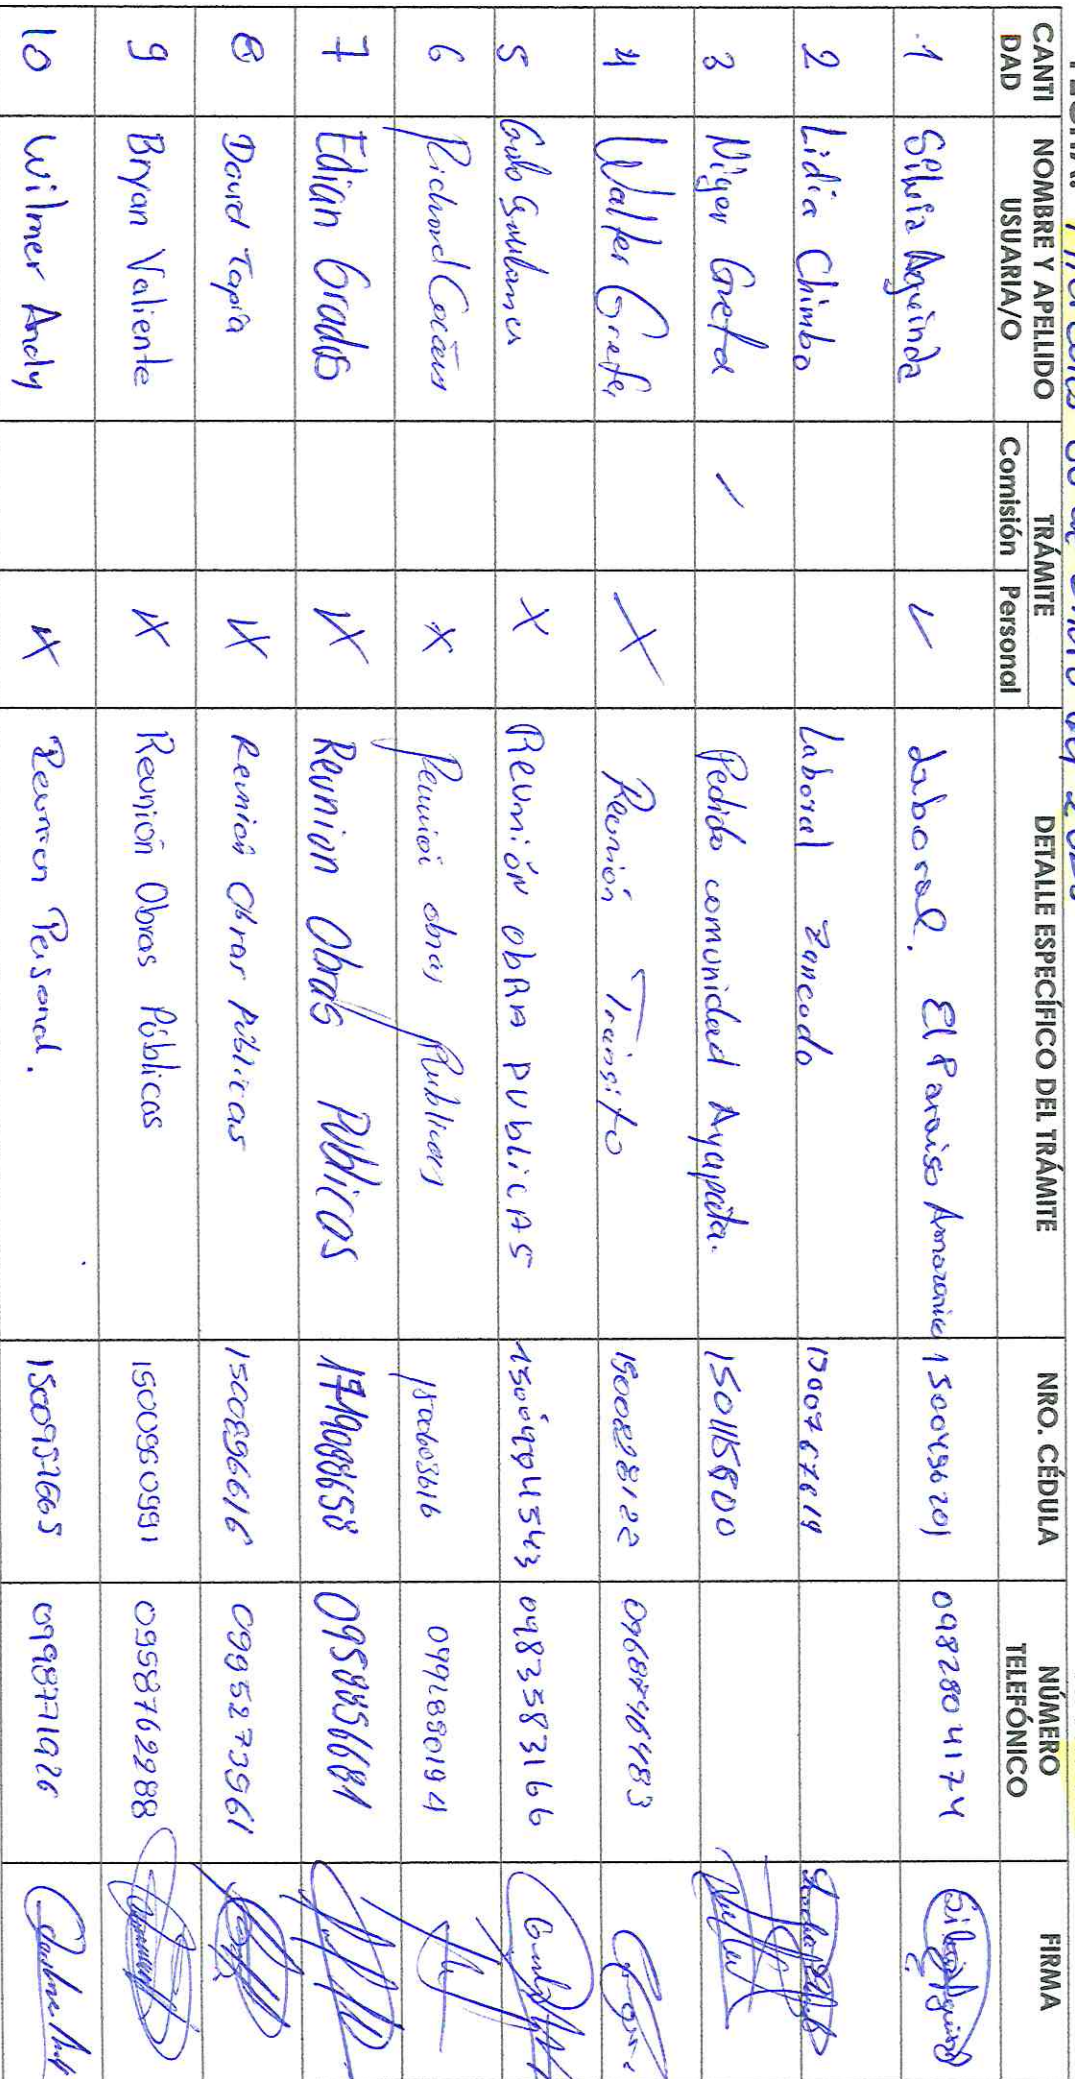 FECHA: Miercoles
CANTIDAD NOMBRE Y APELLIDO USUARIA/O TRÁMITE Comisión Personal DETALLE ESPECÍFICO DEL TRÁMITE NRO. CÉDULA NÚMERO TELEFÓNICO FIRMA
1 Silvia Aguinda ✓ Laboral. El Paraiso Amazonico 1500456201 0982804174
2 Lidia Chimbo Laboral Zancodo 1500767619
3 Niger Grefa / Pedido comunidad Ayapata. 150115800
4 Walter Grefa X Reunión Transito 1500828122 0968746483
5 X Reunión obRA publicAS 0983583166
6 Richard X Reunioi obras Publicas 1500603616 0992880194
7 Edian Grados X Reunion Obras Públicas 1719088658 0958856681
8 David Tapia X Reunion Obras públicas 1500896616 0995273961
9 Bryan Valiente X Reunión Obras Públicas 1500960991 0958762288
10 Wilmer Andy X Reunion Personal. 1500957665 0998771926